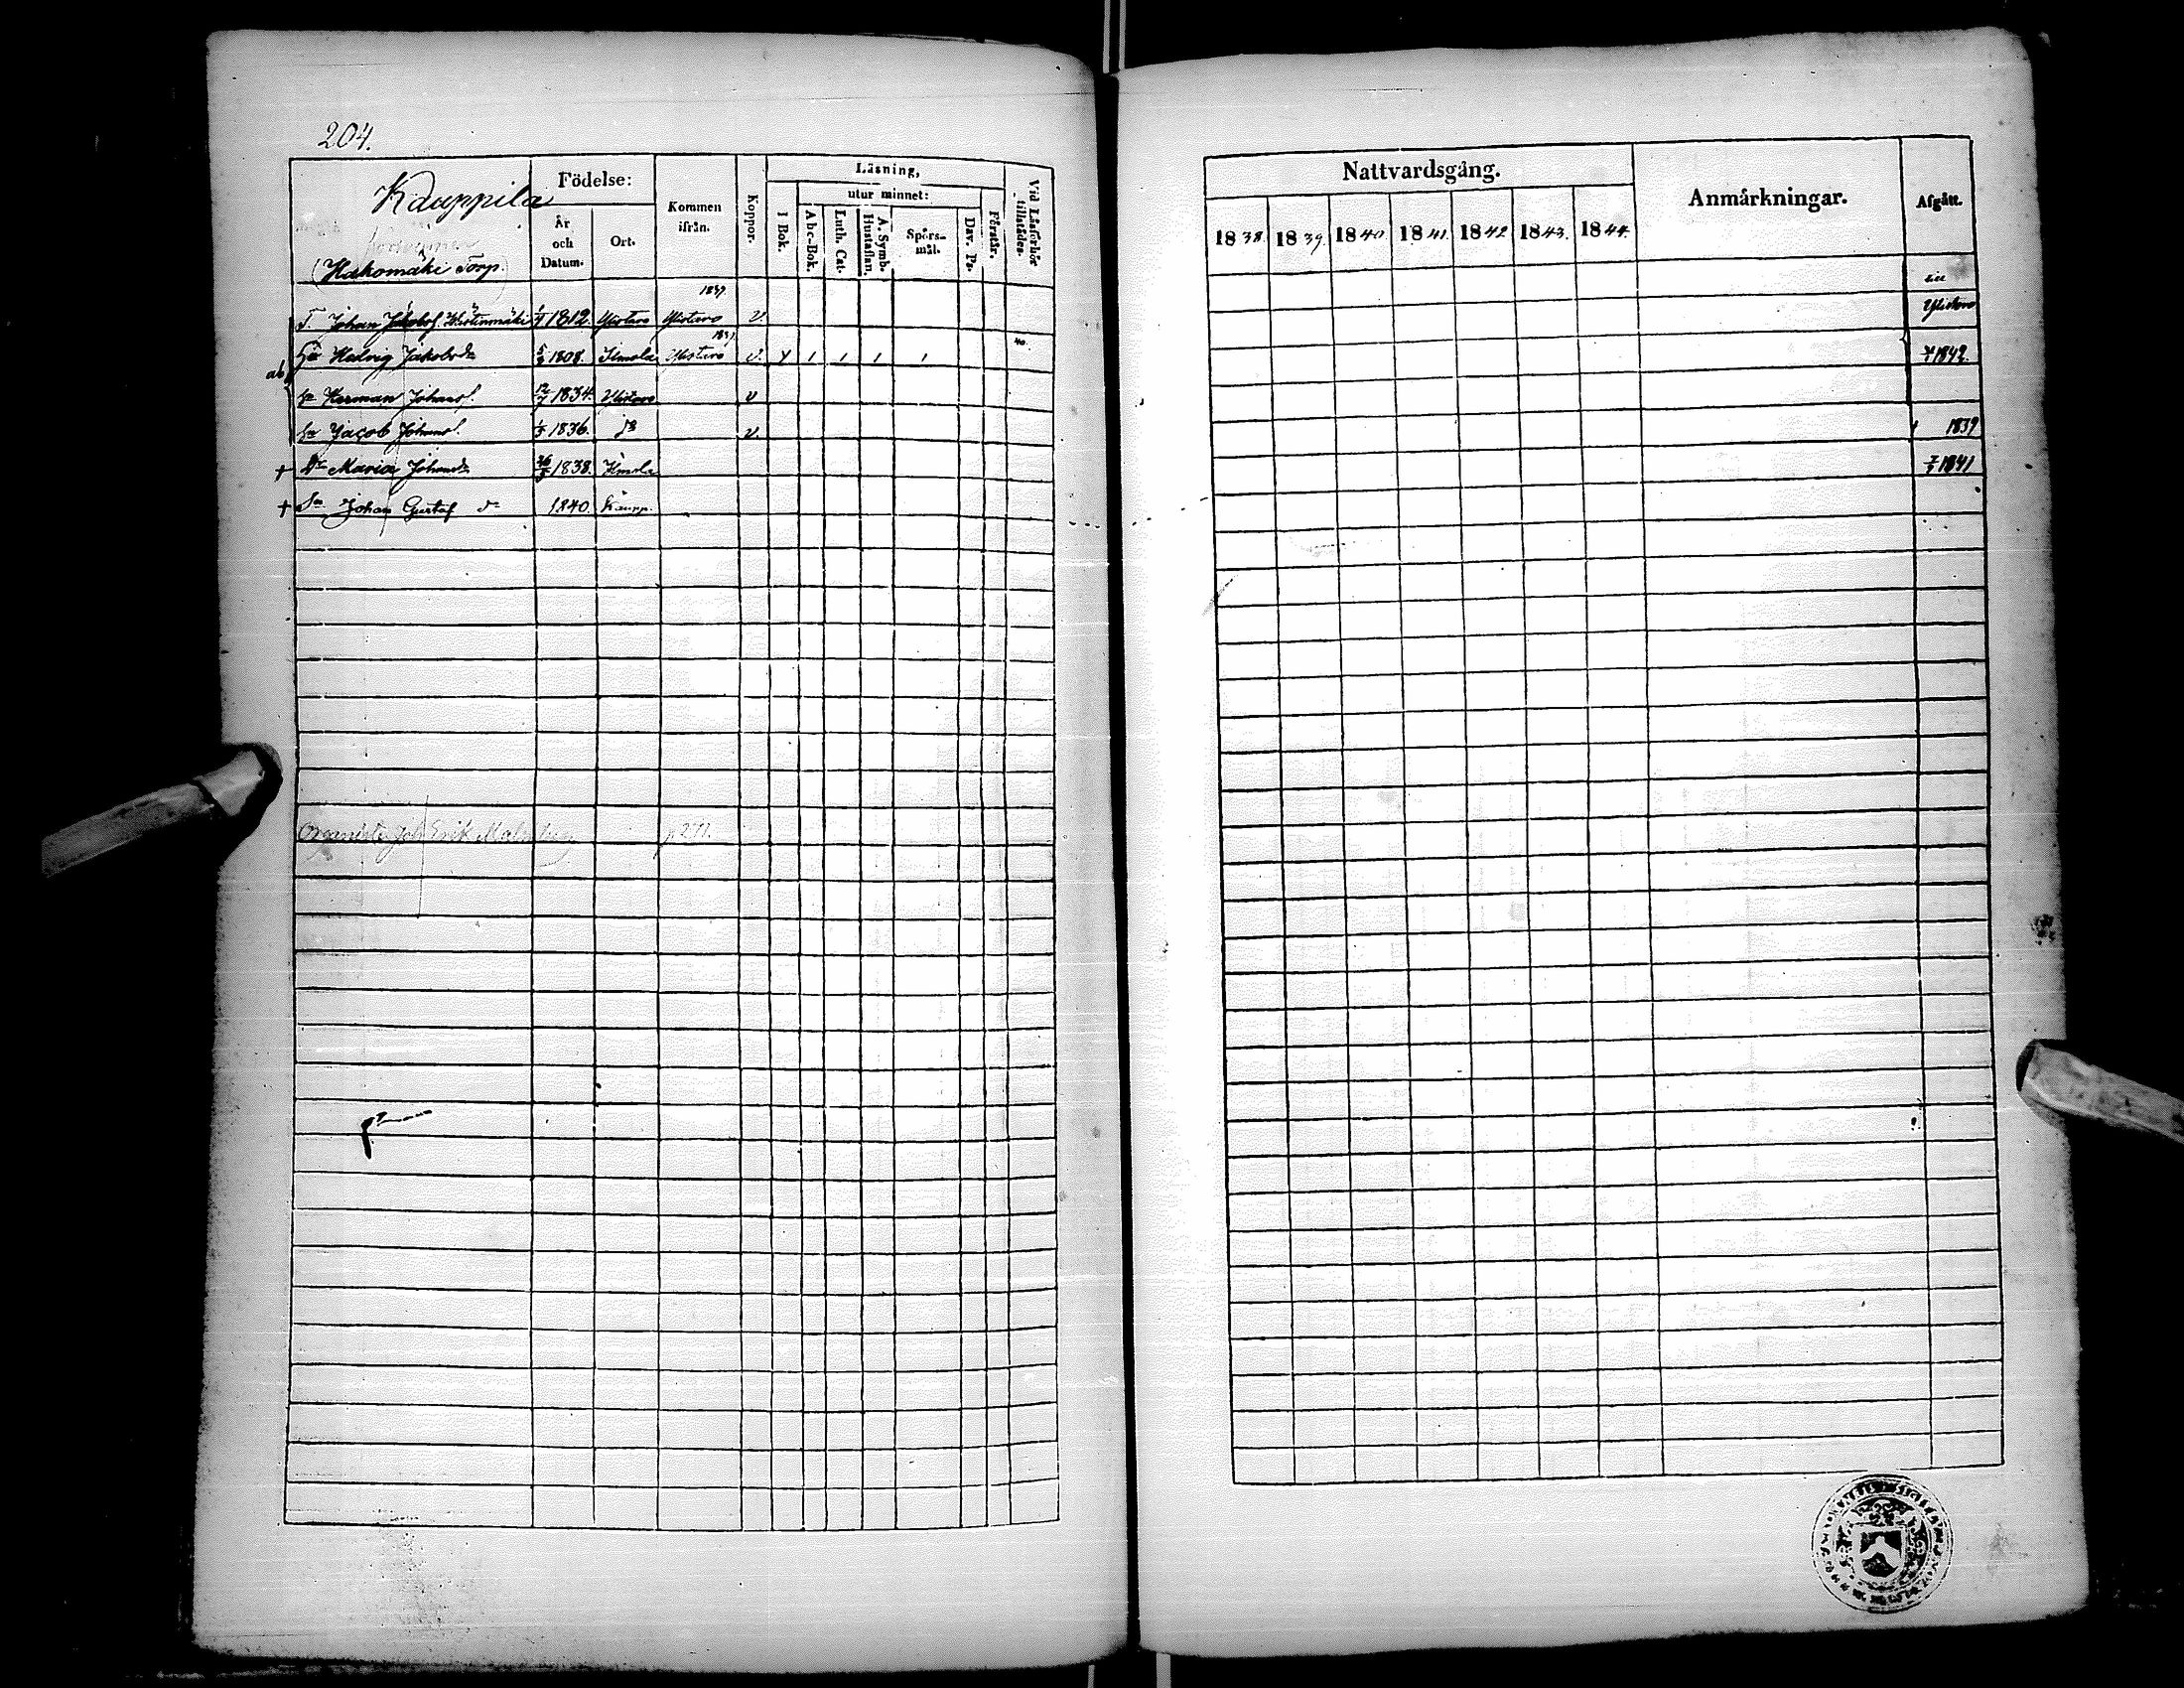 204.
Kauppila
(Hakomäki Torp.)
Födelse:
År och Datum.
Ort.
Kommen ifrån.
Koppor.
Läsning,
utur minnet:
I Bok.
Abc-Bok.
Luth. Cat.
A. Symb. Hustaflan.
Spörsmål.
Dav. Ps.
Förstår.
Vid Läsförhör tillstädes.
1839
T. Johan Jakobs. 1812. Ylistaro Ylistaro v
1839
Hu Hedvig Jakobsdr 1808. Ilmola Ylistaro v. 1 1 1 1 40.
ab
Sn Herman Johans. 12/7 1834. Ylistaro v
Sn Jacob Johans. 1836. v.
† Dr Maria Johansdr 1838. Ilmola
† Sn Johan Gustaf dn 1840. Kaupp.
Organisten Joh Erik Malmberg p 271.
Nattvardsgång.
1838. 1839. 1840. 1841. 1842 1843. 1844.
Anmärkningar.
Afgått.
till
Ylistaro
1842.
1839
1841